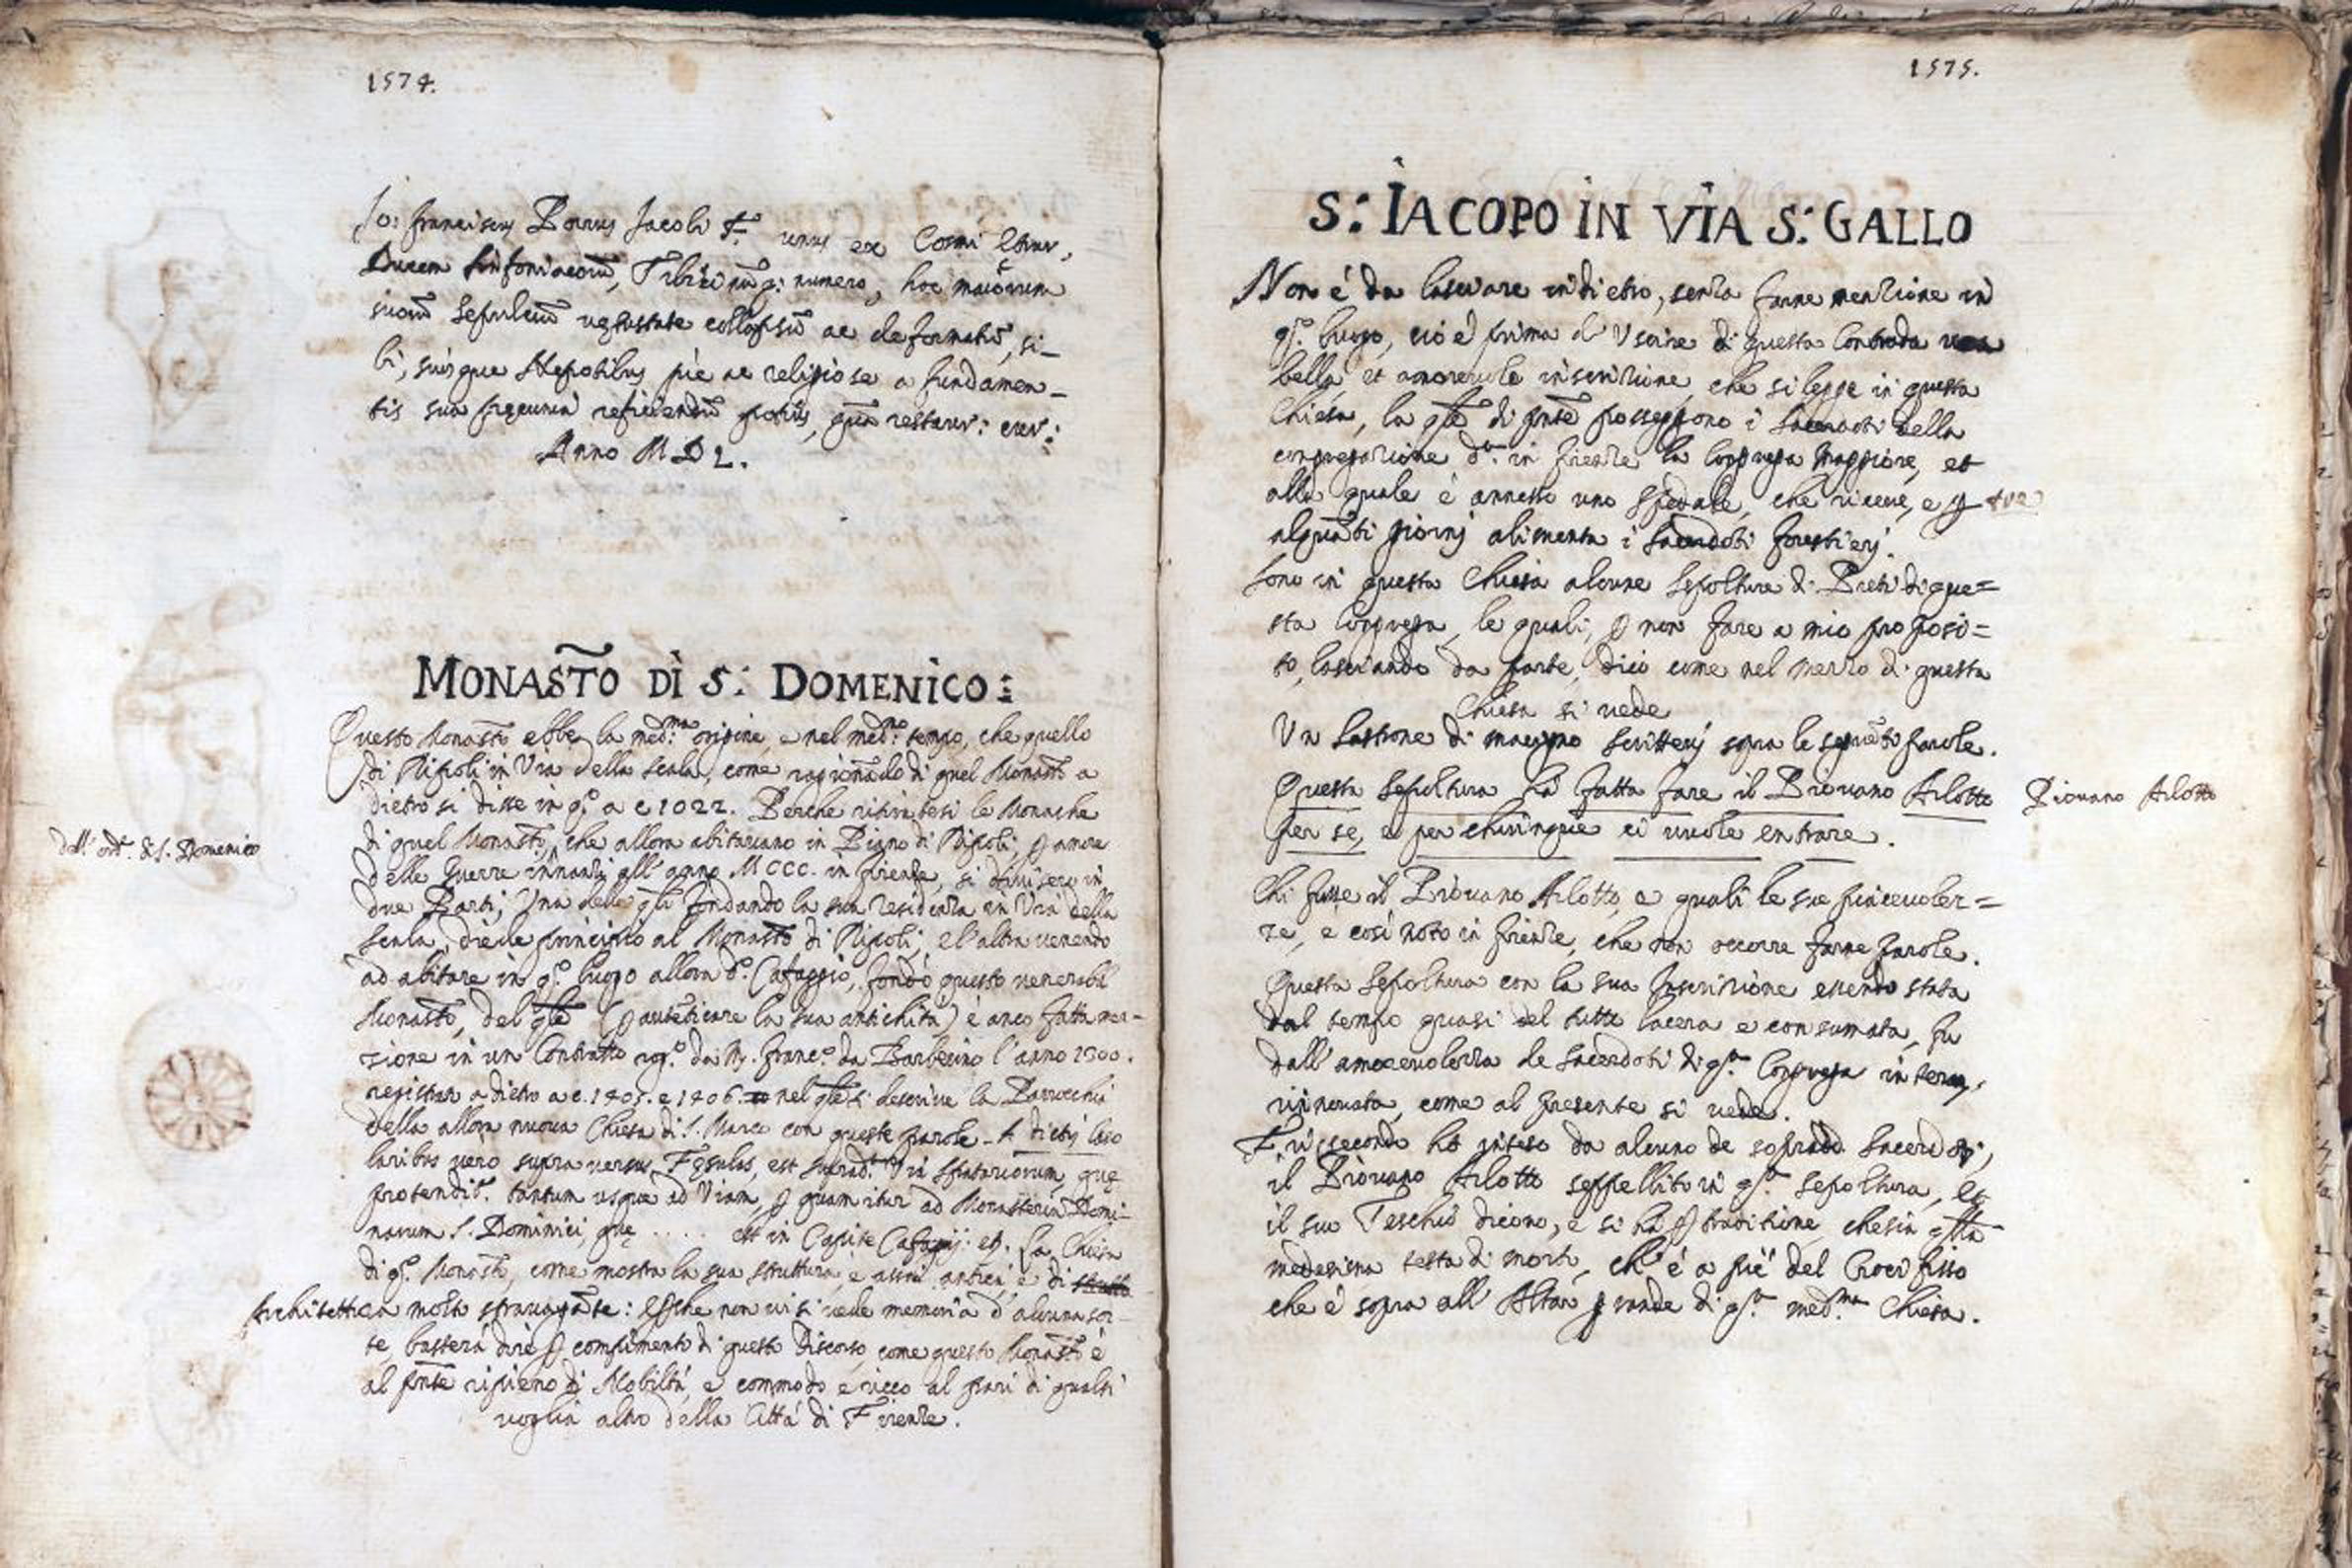 1574.
Jo: Franciscus Borrus Jacobi F. unus ex Cosmi Etrur.
Ducem Sinfoniacorũ, Tibicinũq: numero, hoc maiorum
suorũ Sepulcrũ uetustate collapsũ ac deformatũ, si-
bi, suisque Nepotibus pie ac religiose a fundamen-
tis sua pecunia reficiendũ potius, quã restaur: cur:
Anno MDL.
MONASTO DI S: DOMENICO:
Questo Monasto ebbe la med:ma origine, e nel med:mo tempo, che quello
di Ripoli in Via della Scala, come ragionãdo di quel Monasto a
dietro si disse in qo. a c 1022. Perche ritiratesi le Monache
di quel Monasto, che allora abitauano in Piano di Ripoli, p amore
delle Guerre innanzi all' anno MCCC. in Firenze, si diuisero in
due Parti; Una delle qli fondando la sua residenza in Via della
Scala, diede principio al Monasto di Ripoli; e l'altra uenendo
ad abitare in qo. luogo allora do. Cafaggio, fondò questo uenerabil
Monasto, del qle (p autẽticare la sua antichità) è anco fatta men-
zione in un Contratto rogo. da Sr. Franco. da Barberino l'anno 1300.
registrato a dietro a c. 1405. e 1406. nel qle si descriue la Parrocchia
della allora nuova Chiesa di S. Marco con queste parole - A dictis loco
laribus uero supra uersus Fęsulas, est suprad.ta Via Spatariorum, quę
protendit. tantum usque ad Viam, p quam itur ad Monasteriũ Domi-
narum S. Dominici, quę . . . . . est in Capite Cafagij: etc. La Chiesa
di qo. Monasto, come mostra la sua struttura, e assai antica, e di
Architettura molto strauagãte: E pche non ui si uede memoria d'alcuna sor-
te, basterà dire p compimento di questo Discorso, come questo Monasto è
al pñte ripieno di Nobiltà, e commodo e ricco al pari di qualsi
voglia altro della Città di Firenze.
dell' ord. di S. Domenico
1575.
S: IACOPO IN VIA S: GALLO
Non è da lasciare indietro, senza farne menzione in
qo. luogo, ciò è prima di Uscire di questa Contrada una
bella et amoreuole inscrizione che si legge in questa
Chiesa, la qle di pñte posseggono i Sacerdoti della
congregazione da. in Firenze la Congrega Maggiore, et
alla quale è annesso uno Spedale, che riceue, e p tre
alquãti giorni alimenta i Sacerdoti forestieri.
Sono in questa Chiesa alcune Sepolture di Preti di que=
sta Congrega, le quali, p non fare a mio proposi=
to, lasciando da parte, dico come nel mezzo di questa
Chiesa si uede
Un lastrone di macigno scrittoui sopra le seguẽti parole.
Questa Sepoltura hà fatta fare il Piouano Arlotto
per se, e per chiunque ci uuole entrare.
Piouano Arlotto
Chi fusse il Piouano Arlotto, e quali le sue piaceuolez=
ze, è così noto in Firenze, che non occorre farne parole.
Questa Sepoltura con la sua Inscrizione essendo stata
dal tempo quasi del tutto lacera e consumata, fu
dall' amoreuolezza de Sacerdoti di qa. Congrega
rinnouata, come al presente si uede.
Fu secondo ho inteso da alcuno de sopradd. Sacerdoti,
il Piouano Arlotto seppellito in qa. sepoltura, et
il suo Teschio dicono, e si hà p traditione, che sia qlla
medesima testa di morto, ch' è a piè del Crocifisso
che è sopra all' Altar grande di qa. med:ma Chiesa.